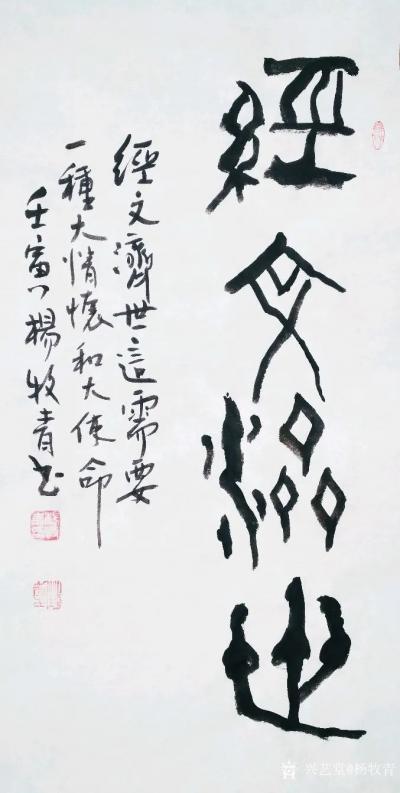 經文濟世
經文濟世這需要
一種大情懷和大使命
壬寅 楊牧青書
兴艺堂@杨牧青